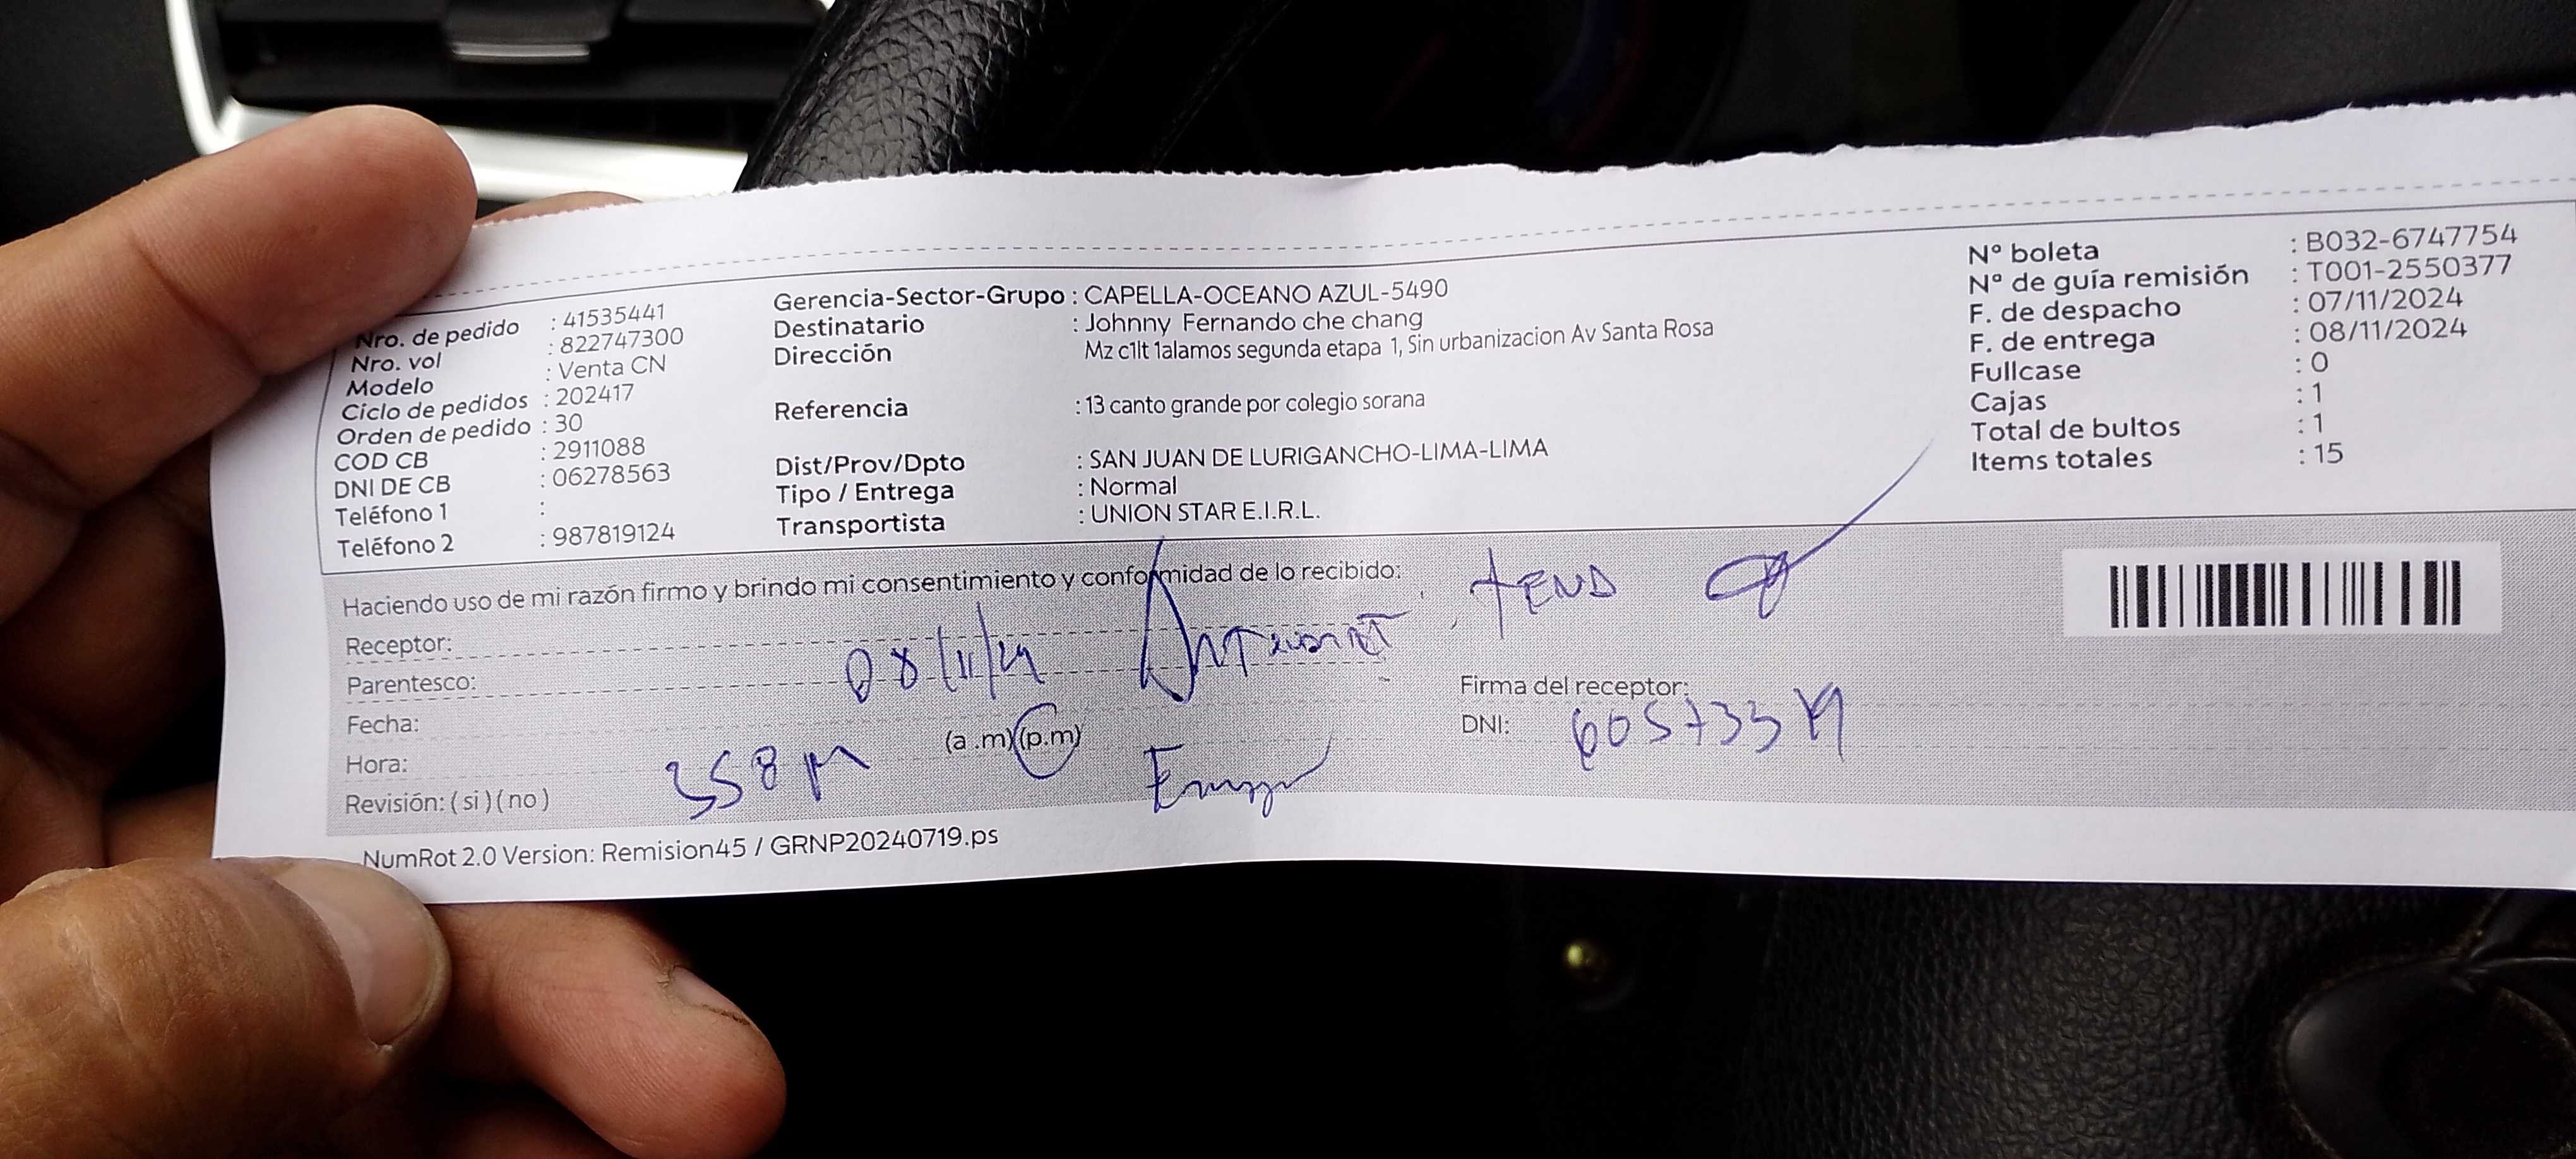 Nro. de pedido : 41535441
Nro. vol : 822747300
Modelo : Venta CN
Ciclo de pedidos : 202417
Orden de pedido : 30
COD CB : 2911088
DNI DE CB : 06278563
Teléfono 1 :
Teléfono 2 : 987819124
Gerencia-Sector-Grupo : CAPELLA-OCEANO AZUL-5490
Destinatario : Johnny Fernando che chang
Dirección Mz c1lt 1alamos segunda etapa 1, Sin urbanizacion Av Santa Rosa
Referencia : 13 canto grande por colegio sorana
Dist/Prov/Dpto : SAN JUAN DE LURIGANCHO-LIMA-LIMA
Tipo / Entrega : Normal
Transportista : UNION STAR E.I.R.L.
N° boleta : B032-6747754
N° de guía remisión : T001-2550377
F. de despacho : 07/11/2024
F. de entrega : 08/11/2024
Fullcase : 0
Cajas : 1
Total de bultos : 1
Items totales : 15
Haciendo uso de mi razón firmo y brindo mi consentimiento y conformidad de lo recibido:
Receptor:
Parentesco:
Fecha: 08/11/24
Hora: 358 pm (a .m)(p.m)
Revisión: ( si ) ( no )
Firma del receptor:
DNI:
NumRot 2.0 Version: Remision45 / GRNP20240719.ps